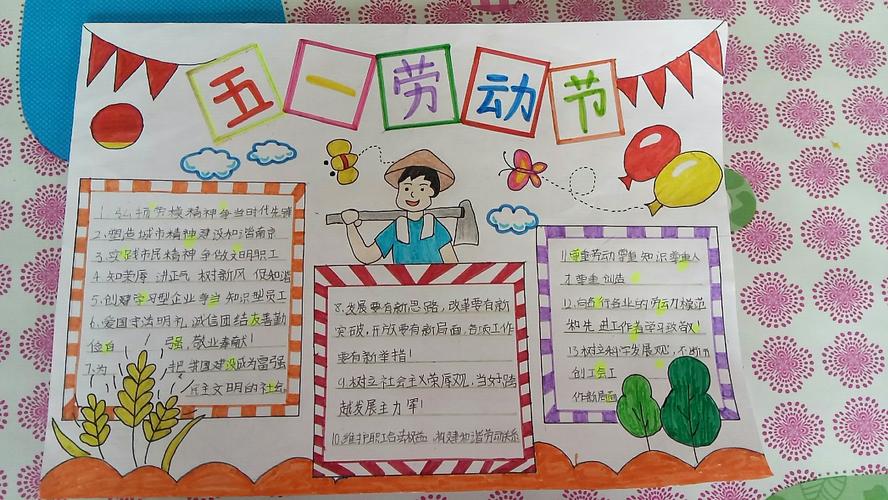 五一劳动节
1.弘扬劳模精神争当时代先锋
2.塑造城市精神建设和谐南京
3.实践市民精神争做文明职工
4.知荣辱 讲正气 树新风 促和谐
5.创建学习型企业争当知识型员工
6.爱国守法明礼诚信团结友善勤
俭自强 敬业奉献!
7.为 把我国建设成为富强
民主文明的社会
8.发展要有新思路,改革要有新
突破,开放要有新局面,各项工作
要有新举措!
9.树立社会主义荣辱观,当好跨
越发展主力军!
10.维护职工合法权益 构建和谐劳动关系
11.尊重劳动尊重知识尊重人
才尊重创造
12.向各行各业的劳动模范
和先进工作者学习致敬!
13.树立科学发展观,不断
创工会工
作新局面